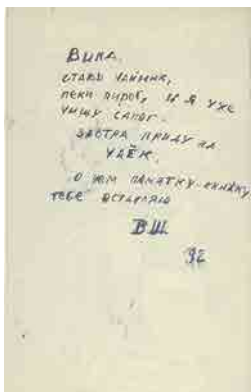 Вика,
ставь чайник,
пеки пирог, и я уже
чищу сапог.
завтра приду на
чаёк.
о чём памятку-книжку
тебе оставляю
ВШ
92